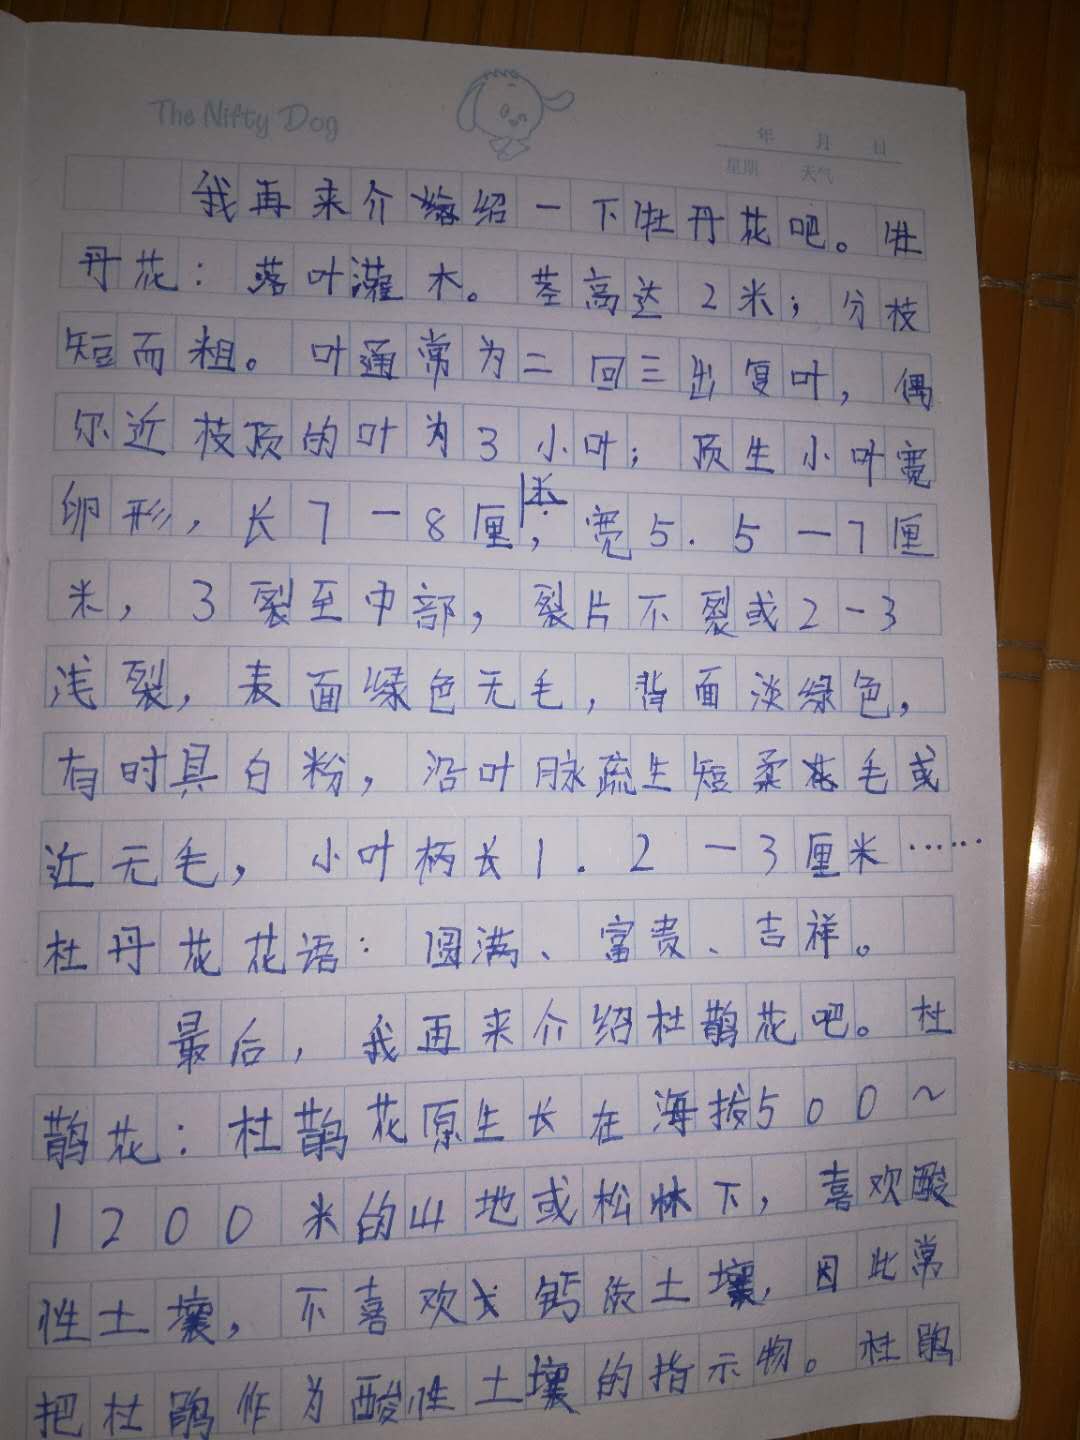 The Nifty Dog
年 月 日
星期 天气
我再来介绍一下牡丹花吧。牡
丹花：落叶灌木。茎高达2米；分枝
短而粗。叶通常为二回三出复叶，偶
尔近枝顶的叶为3小叶；顶生小叶宽
卵形，长7-8厘米，宽5.5-7厘
米，3裂至中部，裂片不裂或2-3
浅裂，表面绿色无毛，背面淡绿色，
有时具白粉，沿叶脉疏生短柔毛或
近无毛，小叶柄长1.2-3厘米……
杜丹花花语：圆满、富贵、吉祥。
最后，我再来介绍杜鹃花吧。杜
鹃花：杜鹃花原生长在海拔500~
1200米的山地或松林下，喜欢酸
性土壤，不喜欢钙质土壤，因此常
把杜鹃作为酸性土壤的指示物。杜鹃